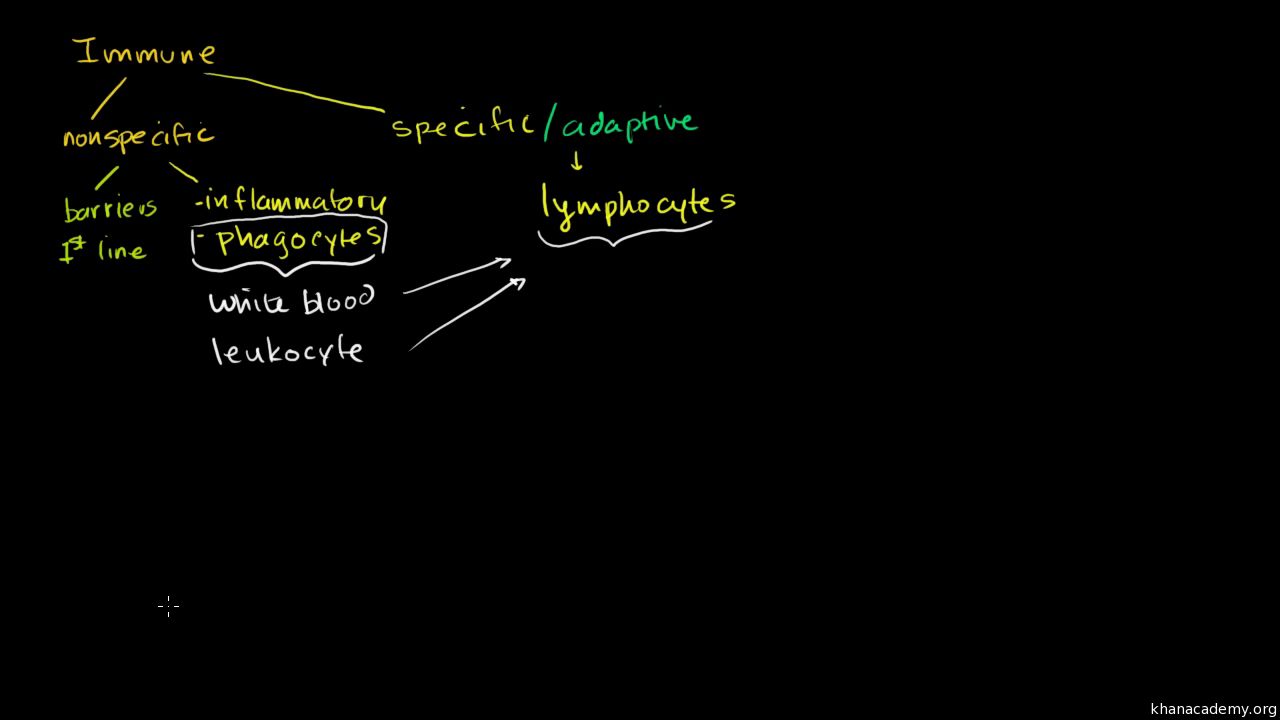 Immune
nonspecific
specific/adaptive
barriers
1st line
-inflammatory
- phagocytes
lymphocytes
white blood
leukocyte
khanacademy.org